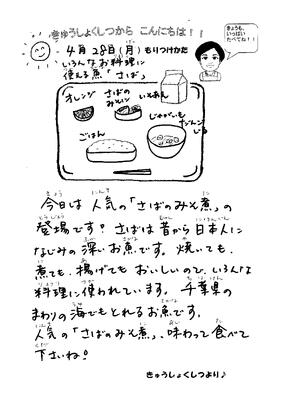 きゅうしょくしつから こんにちは！！
きょうも、
いっぱい
たべてね！！
4月28日(月) もりつけかた
いろんなお料理に
使える魚「さば」
オレンジ
さばの
みそに
いそあえ
じゃがいも
だんご
じる
ごはん
今日は人気の「さばのみそ煮」の
登場です！さばは昔から日本人に
なじみの深いお魚です。焼いても、
煮ても、揚げてもおいしいので、いろんな
料理に使われています。千葉県の
まわりの海でもとれるお魚です。
人気の「さばのみそ煮」、味わって食べて
下さいね！
きゅうしょくしつより♪